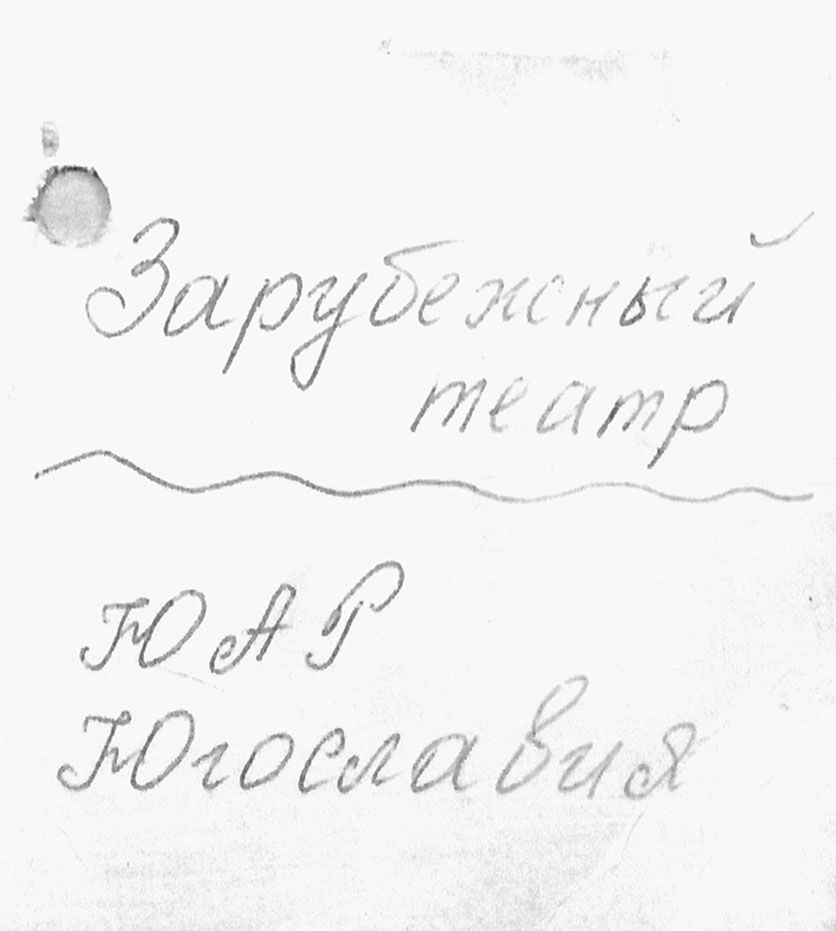 Зарубежный
театр
ЮАР
Югославия